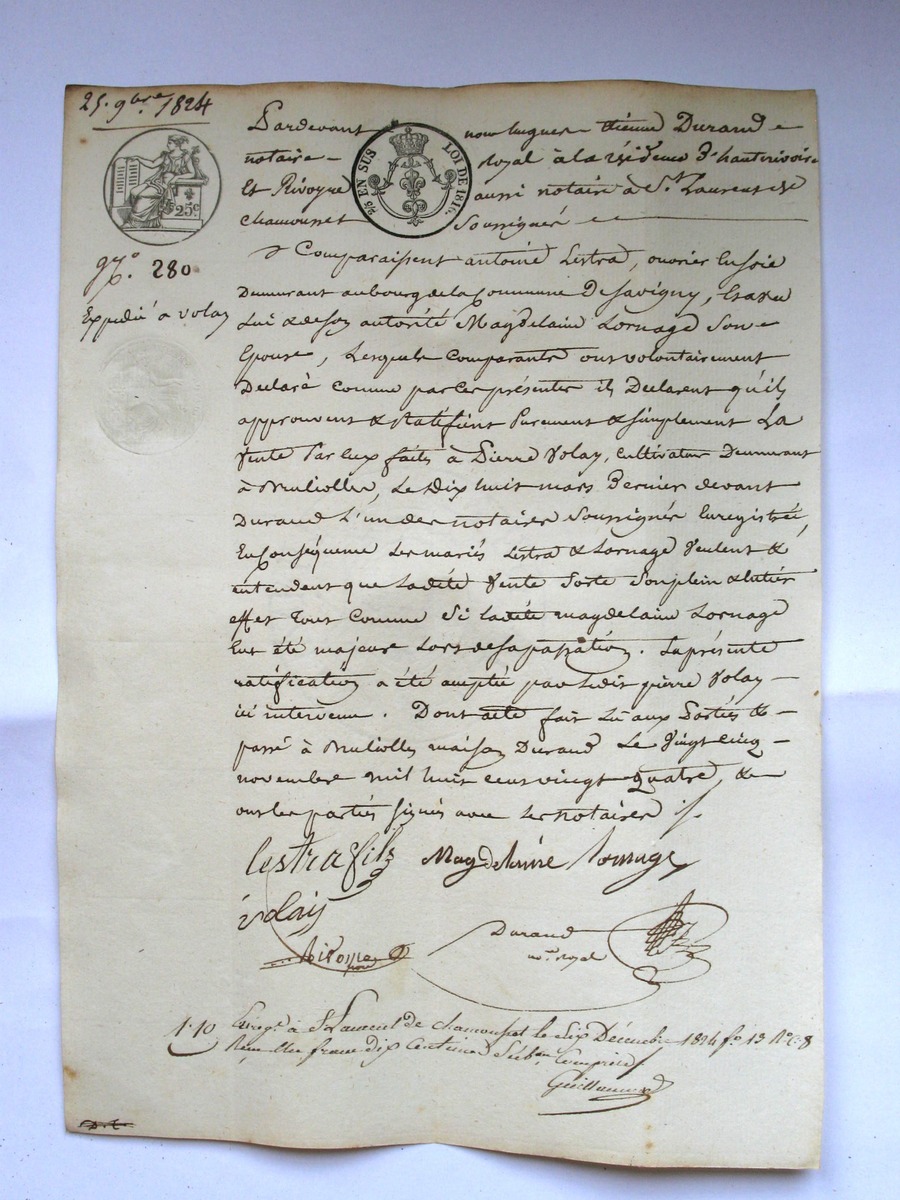 25. 9bre 1824
25c
2/5 EN SUS LOI DE 1816.
No. 280
Expédié à volay
Pardevant nous hugues étienne Durand
notaire royal à la résidence D'hauterivoire
Et Rivoyre aussi notaire à St. Laurent de
chamousset Soussignés
Comparaissent antoine Lestra, ouvrier En Soie
Demeurant au bourg de la Commune De Savigny, & de
Lui & de Son autorité Magdelaine Lornage Son
Epouse, Lesquels Comparants ont volontairement
Déclaré comme par Ces présentes ils Déclarent qu'ils
approuvent & Ratifient Purement & Simplement La
Vente Par Eux faite à Pierre Volay, Cultivateur Demeurant
à Bruliolles, Le Dix huit mars Dernier devant
Durand L'un des notaires Soussignés Enregistrée,
En Conséquence Les mariés Lestra & Lornage Veulent &
entendent que Ladite Vente Sorte Son plein & entier
effet Tout Comme Si Ladite magdelaine Lornage
Eut été majeure Lors de Sa passation. La présente
ratification a été acceptée par Ledit pierre Volay
ici intervenu. Dont acte fait Lu aux Parties &
passé à Bruliolles maison Durand Le Vingt Cinq
novembre mil huit cent vingt Quatre, &
ont Les parties Signés avec Les notaires
Lestra fils Magdelaine Lornage
volay
Rivoyre
Durand
nre. royal
1.10 Enregé à St Laurent de chamousset le Six Décembre 1824 fo. 13 No. 8
Reçu Un franc dix Centimes Subon Compris
Guillermet